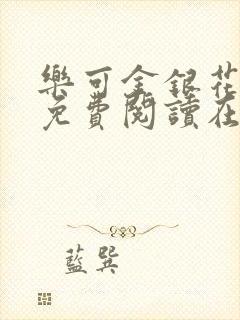 樂可金銀花
免費閱讀在
藍巽